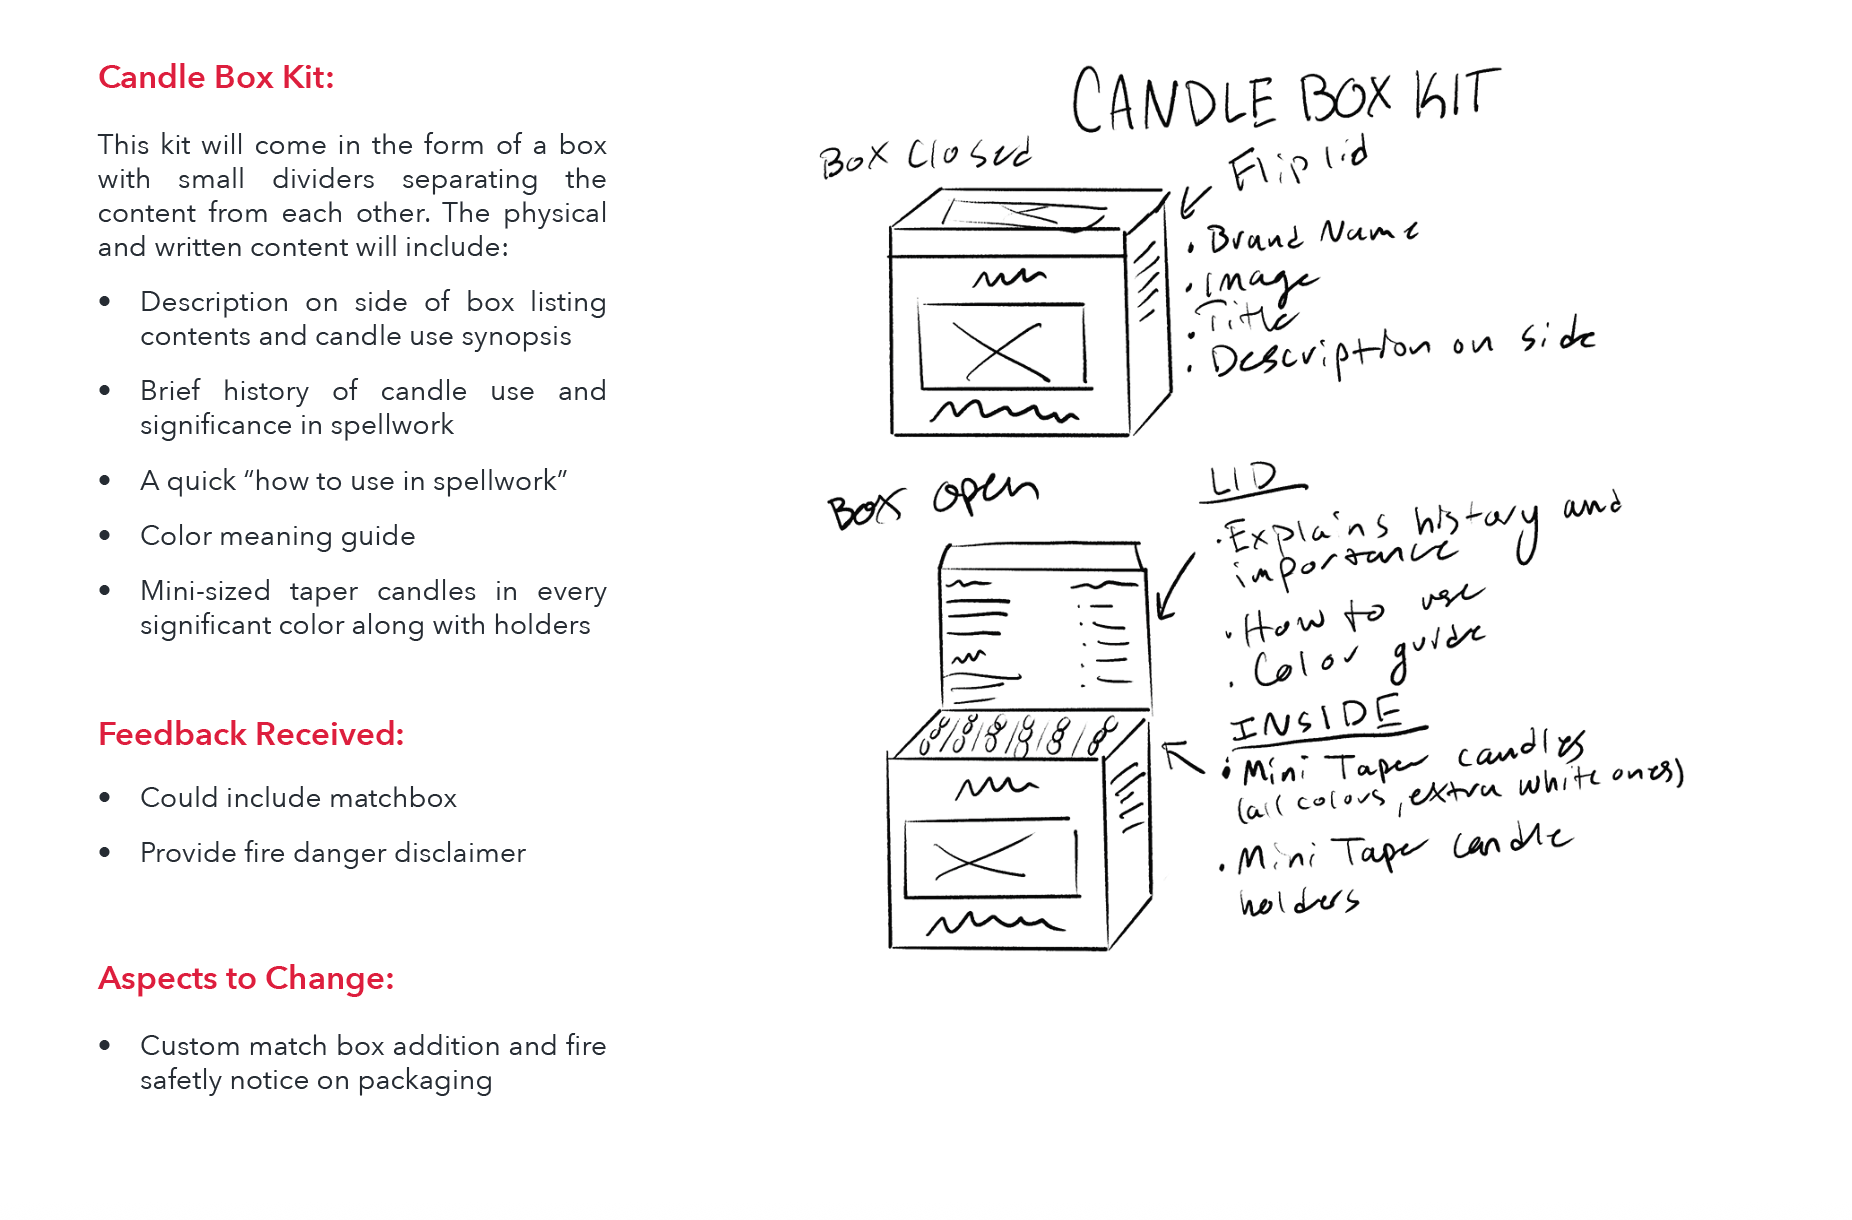 Candle Box Kit:
This kit will come in the form of a box
with small dividers separating the
content from each other. The physical
and written content will include:
• Description on side of box listing
contents and candle use synopsis
• Brief history of candle use and
significance in spellwork
• A quick “how to use in spellwork”
• Color meaning guide
• Mini-sized taper candles in every
significant color along with holders
Feedback Received:
• Could include matchbox
• Provide fire danger disclaimer
Aspects to Change:
• Custom match box addition and fire
safetly notice on packaging
CANDLE BOX KIT
Box Closed
Flip lid
• Brand Name
• Image
• Title
• Description on side
Box open
LID
• Explains history and
importance
• How to use
• Color guide
INSIDE
• Mini Taper candles
(all colors, extra white ones)
• Mini Taper candle
holders